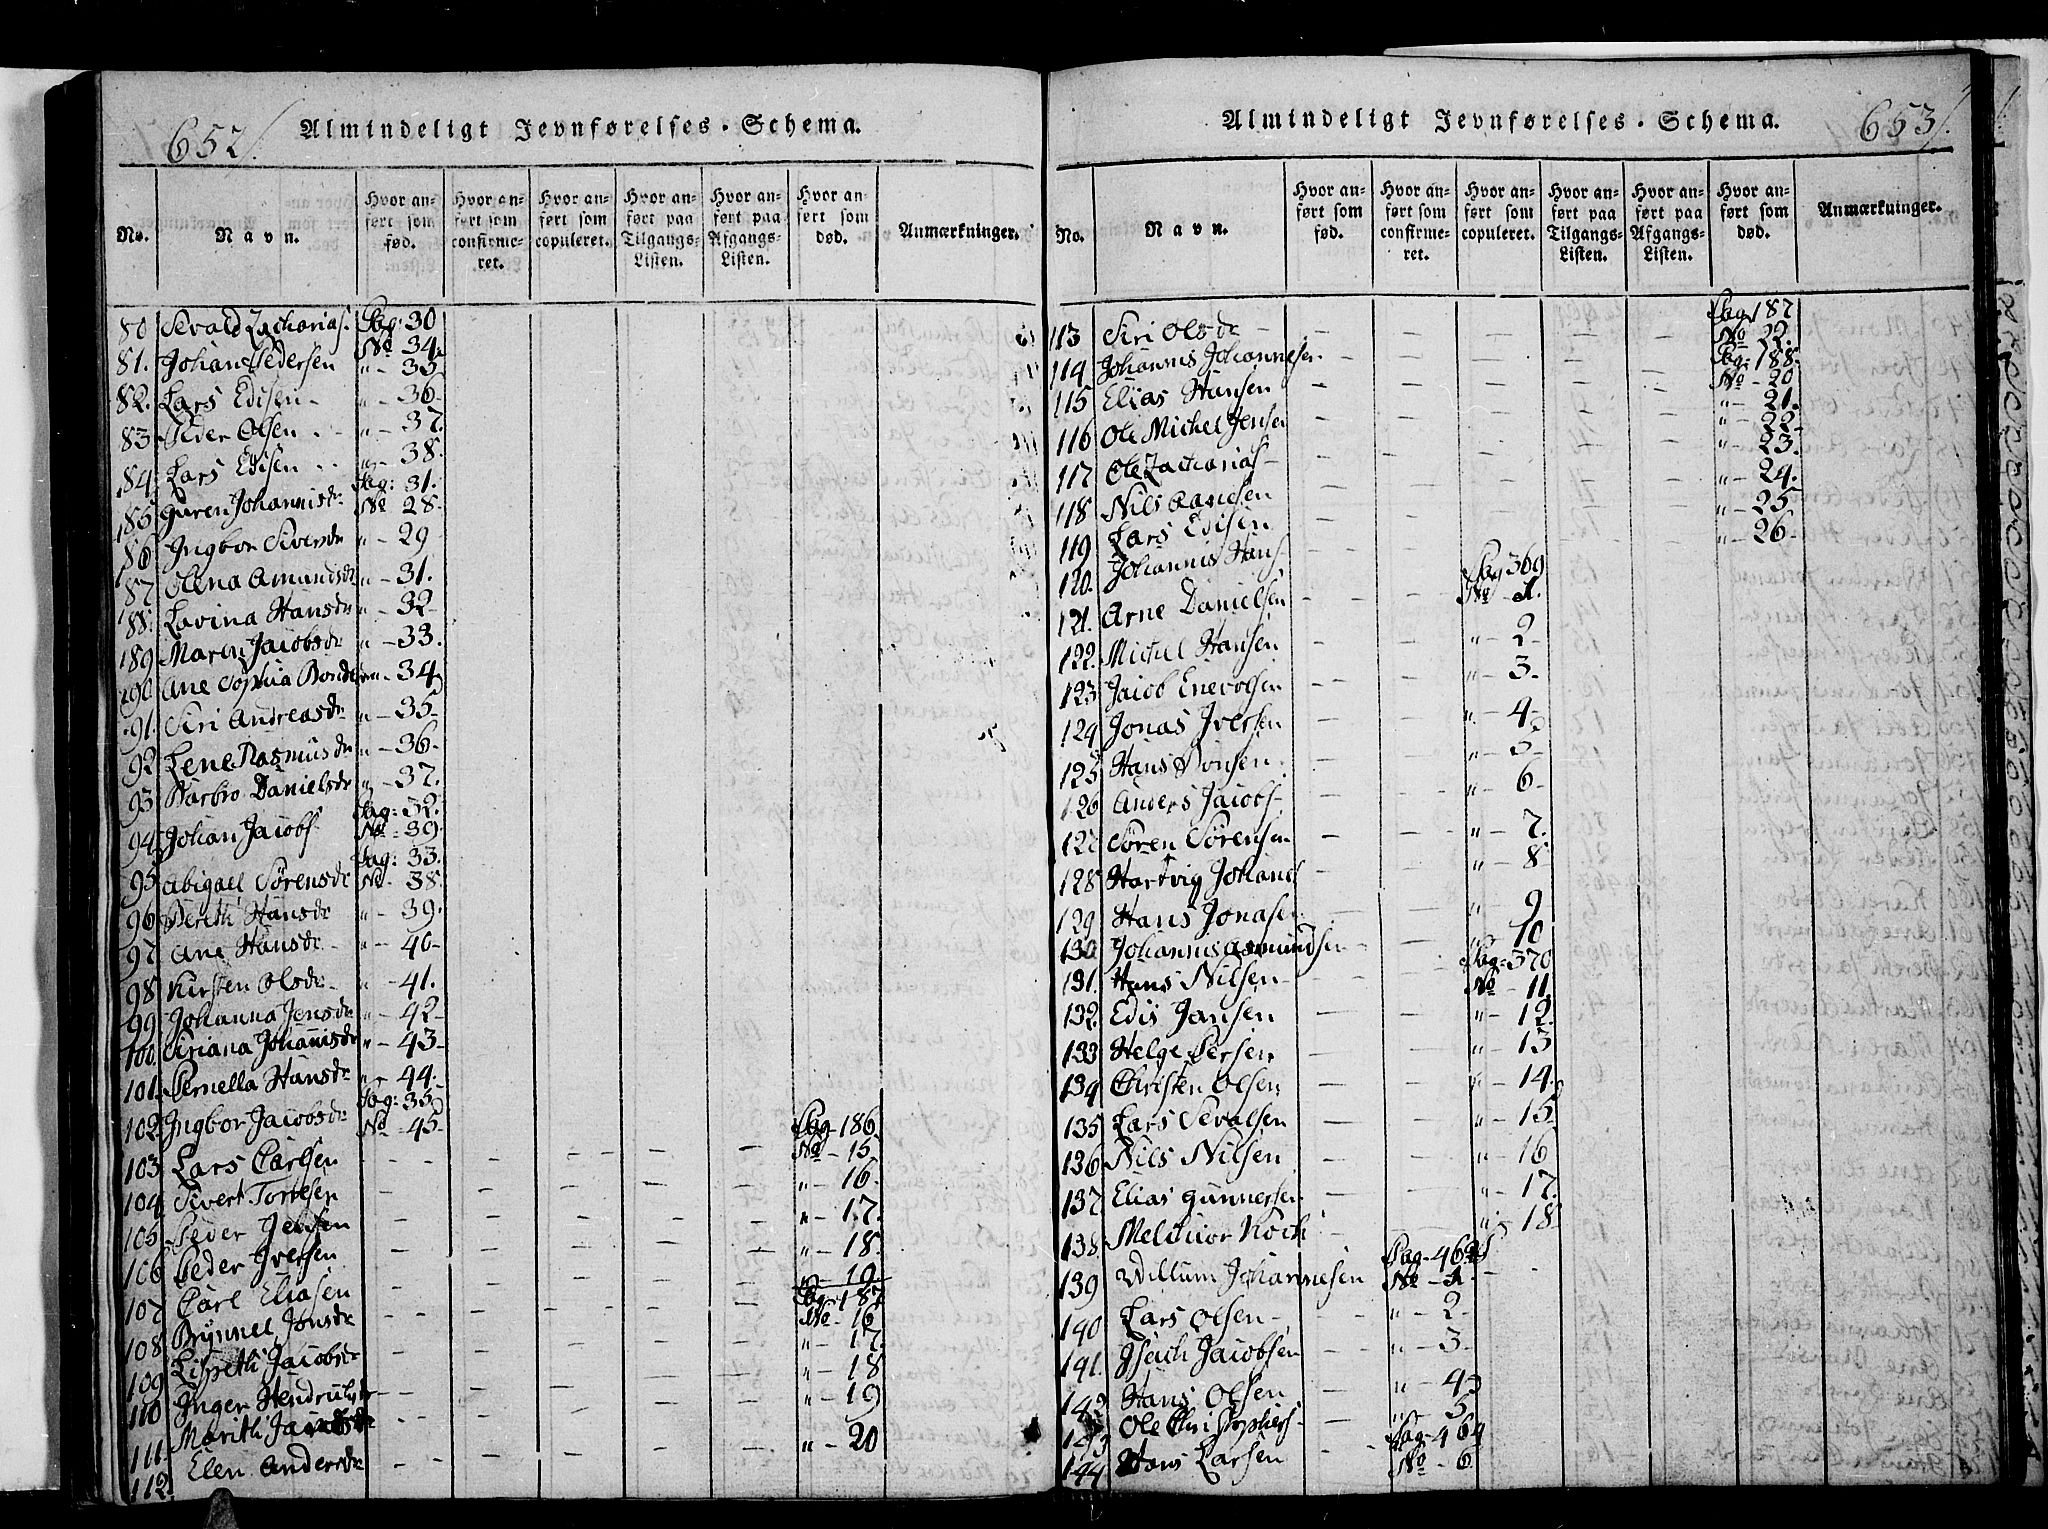 652.
Almindeligt Jevnførelses-Schema.
No.
Navn.
Hvor anført som fød.
Hvor anført som confirmeret.
Hvor anført som copuleret.
Hvor anført paa Tilgangs-Listen.
Hvor anført paa Afgangs-Listen.
Hvor anført som død.
Anmærkninger.
80 Sivald Zacharias. Pag: 30 No 34
81. Johan Pedersen " - 35
82. Lars Edisen - " - 36 -
83 Peder Olsen " - 37.
84. Lars Edisen " - 38.
85 Guren Johannisdr Pag: 31. No 28.
86 Ingbor Siversdr " - 29
87 Olena Amundsdr " - 31.
88. Lavina Hansdr " - 32 -
89 Maren Jacobsdr " - 33.
90 Ane Sophia " - 34
91. Siri Andreasdr " - 35 -
92 Lene Rasmusdr " - 36 -
93 Barbro Danielsdr " - 37.
94 Johan Jacobs Pag: 32. No - 39
95 Abigael Sørensdr Pag: 33. No - 38.
96 Bereth Hansdr " - 39.
97 Ane Hansdr - " - 40 -
98 Kirsten Olsdr - " - 41.
99 Johanna Jensdr " - 42 -
100. Siriana Johannisdr " - 43 -
101. Pernella Hansdr " - 44 -
102 Ingbor Jacobsdr Pag: 35 No - 45 -
103 Lars Carlsen Pag - 186 No - 15
104 Sivert Tortesen " - 16.
105 Peder Jensen " - 17.
106 Peder Iversen " - 18.
107 Carl Eliasen " - 19.
108 Brynnel Jonsdr Pag - 187 No - 16
109 Lisbeth Jacobsdr " - 17.
110 Inger " - 18
111. Marith " - 19
112. Elen Andersdr " - 20
Almindeligt Jevnførelses-Schema.
653.
No.
Navn.
Hvor anført som fød.
Hvor anført som confirmeret.
Hvor anført som copuleret.
Hvor anført paa Tilgangs-Listen.
Hvor anført paa Afgangs-Listen.
Hvor anført som død.
Anmærkninger.
113 Siri Olsdr Pag 187 No 22.
114 Johannis Johannesen Pag: 188. No - 20
115 Elias Hansen " - 21.
116 Ole Michel Jensen " - 22.
117 Ole Zacharias - " - 23.
118 Nils " - 24.
119 Lars Edisen " - 25
120. Johannis Hans " - 26 -
121. Arne Danielsen Pag 369 No - 1.
122. Michel Hansen " - 2 -
123 Jacob Enevolsen " - 3.
124 Jonas Iversen " - 4 -
125 Hans " - 5 -
126 Anders Jacobs - " - 6 -
127 Søren Sørensen " - 7.
128 Hartvig Johans " - 8
129 Hans Jonasen " - 9
130 Johannis Asmundsen " - 10
131. Hans Nilsen - Pag - 370 No - 11
132. Edis Jansen " - 12.
133 Helge Persen " - 13
134 Christen Olsen " - 14.
135 Lars Sevalsen " - 15 -
136 Nils Nilsen " - 16
137 Elias Gunnersen " - 17.
138 Melchior Koch " - 18
139 Willum Johannesen Pag - 462 No - 1.
140 Lars Olsen - " - 2 -
141. Isach Jacobsen " - 3 -
142 Hans Olsen " - 4
143 Ole Christophers " - 5
144 Hans Larsen Pag - 464 No - 6